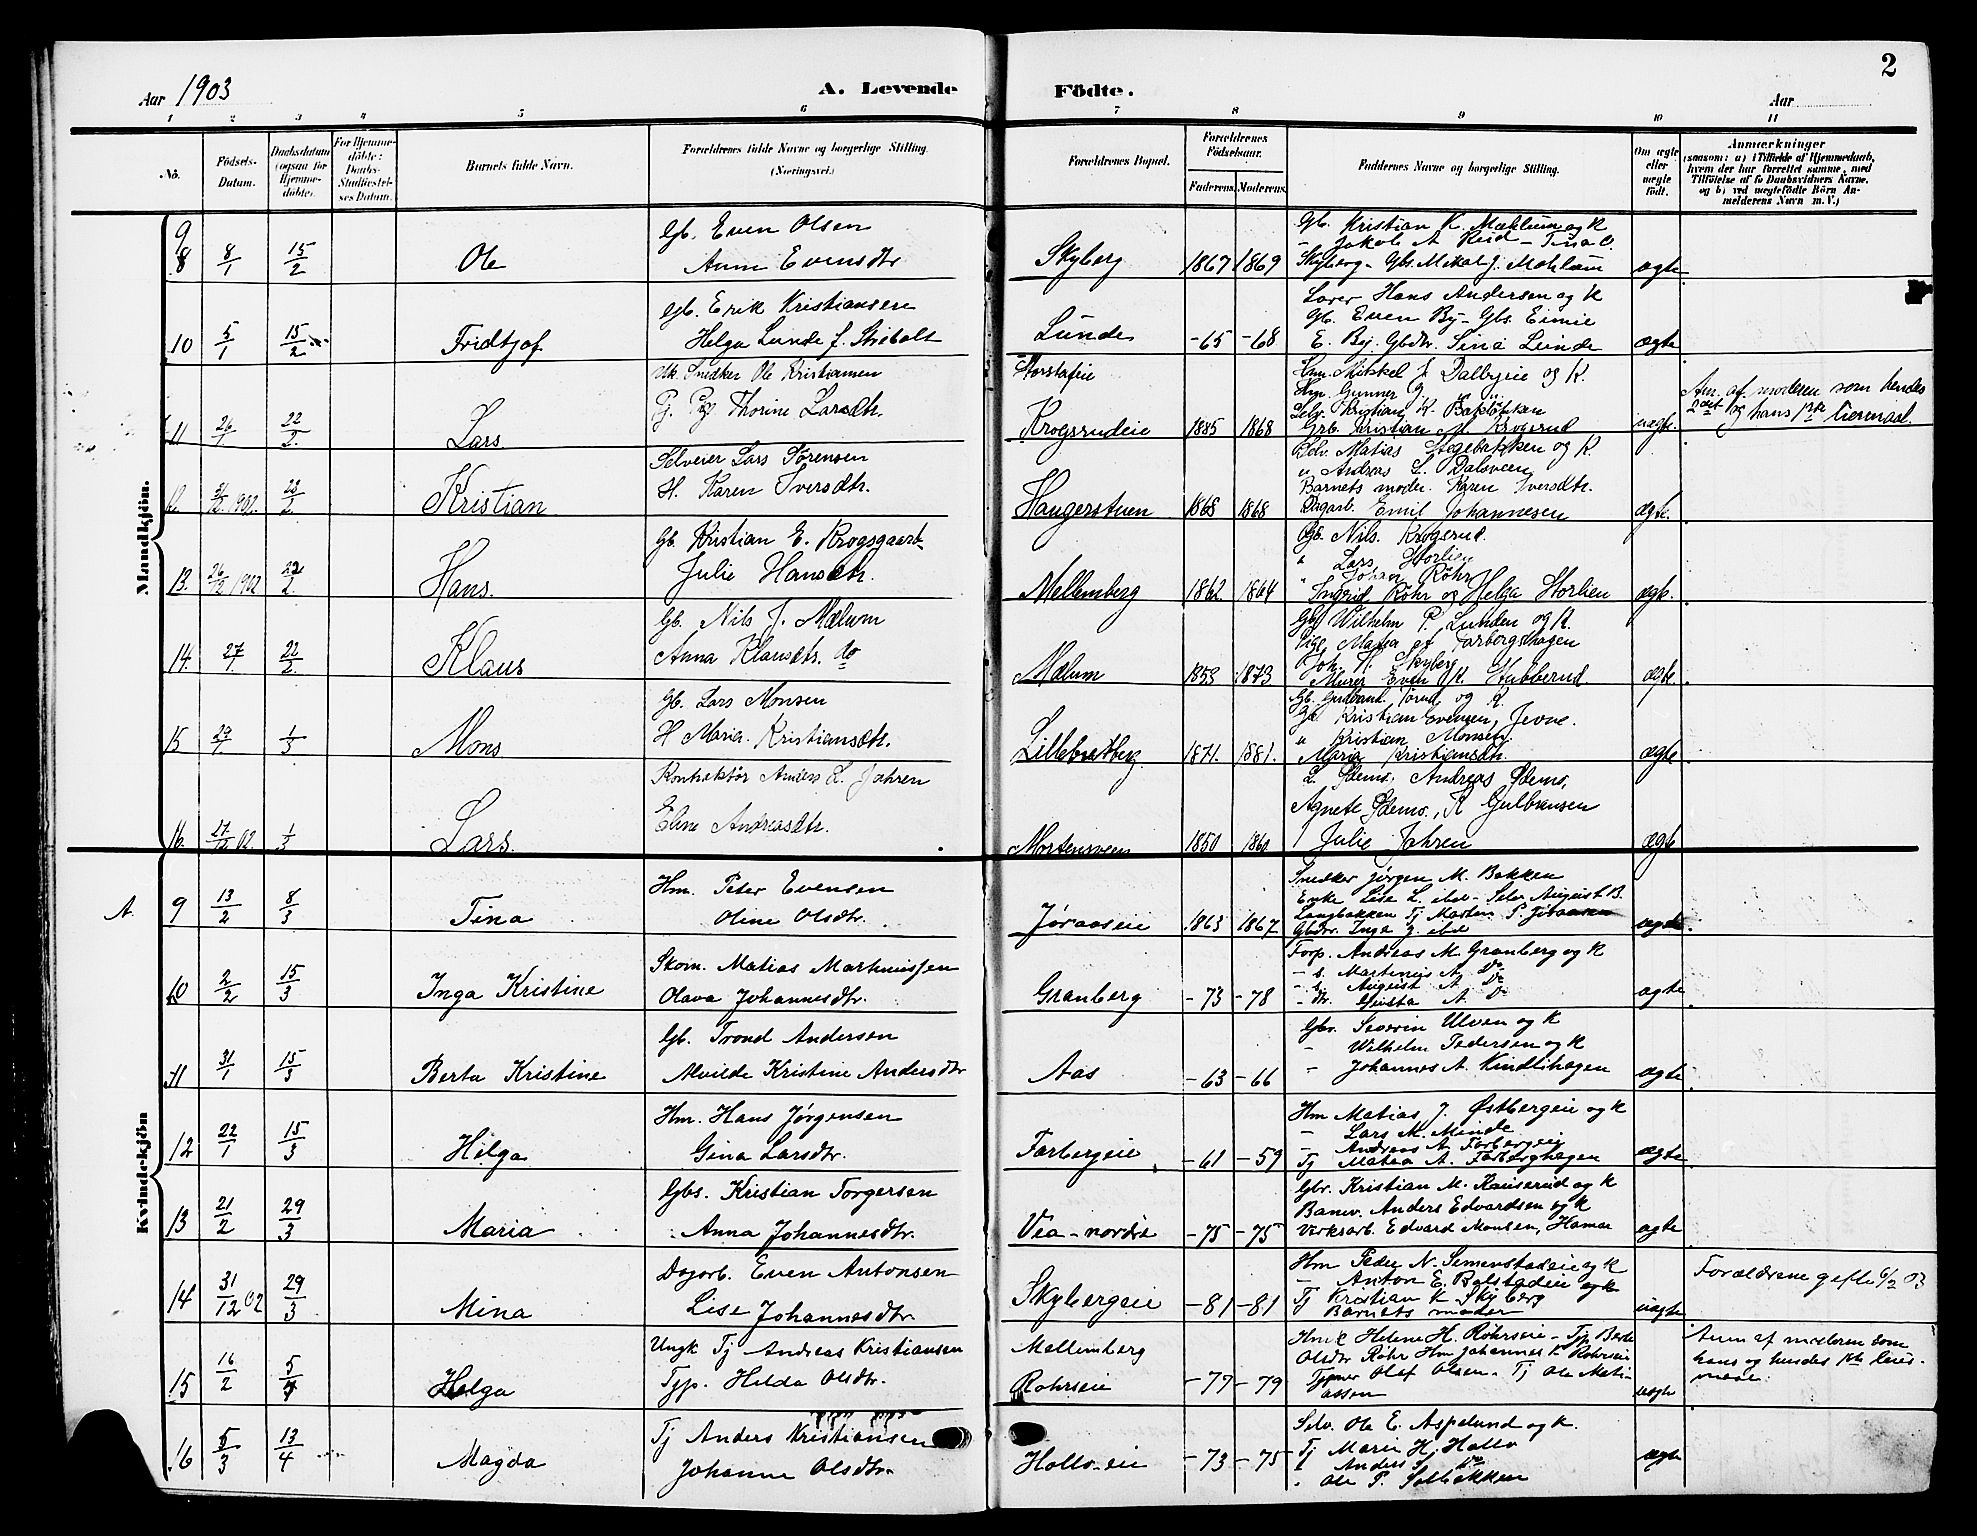 2
Aar 1903
A. Levende
Födte.
Aar
1 2 3 4 5 6 7 8 9 10 11
No.
Födsels-Datum.
Daabsdatum (ogsaa for Hjemmedöbte).
For Hjemmedöbte: Daabs-Stadfæstelses Datum.
Barnets fulde Navn.
Forældrenes fulde Navne og borgerlige Stilling. (Næringsvei.)
Forældrenes Bopæl.
Forældrenes Födselsaar.
Faderens. Moderens.
Faddernes Navne og borgerlige Stilling.
Om ægte eller uægte födt.
Anmærkninger
(saasom: a) i Tilfælde af Hjemmedaab,
hvem der har forrettet samme, med
Tilföielse af to Daabsvidners Navne,
og b) ved uægtefödte Börn An-
melderens Navn m. V.)
Mandkjön.
9
8 8/1 15/2 Ole
Gb. Even Olsen
Anne Evensdtr
Skyberg 1867 1869
Gb. Kristian K. Mæhlum og K
- Jakob A Reid - Tina O.
Skyberg - Gbs. Mikal J. Mæhlum
ægte
10 5/1 15/2 Fridtjof
Gb. Erik Kristiansen
Helga Lunde f. Stribolt
Lunde -65 -68
Lærer Hans Andersen og K
Gb. Even By - Gbs. Eimie
E. By. Gbdtr. Sina Lunde
ægte
11 26/1 22/2. Lars
Uk. Snedker Ole Kristiansen
Pg. Thorine Larsdtr.
Storstaeie
Krogsrudeie 1885 1868
Hm. Mikkel J. Dalbyeie og K.
Hm. Gunner
Selv. Kristian K. Bakløkken
Grb. Kristian M. Krogsrud
uægte
Anm. af moderen som hendes
2det og hans 1ste leiermaal.
12. 31/12 1902. 23/2 Kristian
Selveier Lars Sørensen
H. Karen Iversdtr.
Haugerstuen 1868 1868
Selv. Matias Stegebakken og K.
" Andreas L. Dalsveen
Barnets moder. Karen Iversdtr.
Dagarb. Emil Johannesen
ægte.
13. 26/12 1902 22/2. Hans.
Gb. Kristian E. Krogsgaard
Julie Hansdtr.
Mellemberg 1862. 1864
Gb. Nils Krogsrud.
" Lars Storlien
" Johan Röhr
Ingrid Röhr og Helga Storlien
ægte.
14. 27/1. 22/2. Klaus
Gb. Nils J. Mælum
Anna Klausdtr. do
Mælum 1853 1873
Gbr. Wilhelm P. Lunden og K.
Pige Matea af Farbergshagen
Joh. H. Skyberg
Murer Even K. Stubberud.
ægte.
15 29/1 1/3 Mons
Gb. Lars Monsen
H Maria Kristiansdtr.
Lillebratberg 1871. 1881.
Gb. Gudbrand Torud og K.
Gb. Kristian Evensen, Jevne.
" Kristian Monsen
Maria Kristiansdtr.
ægte
16. 27/12 02. 1/3 Lars.
Kontraktör Anders L. Jahren
Eline Andreasdtr.
Mortensveen 1850 1860.
L. Ødems, Andreas Ødems,
Agnete Ødems, K Gulbransen
Julie Jahren
ægte
Kvindekjön
A. 9 13/2 8/3 Tina
Hm. Peter Evensen
Oline Olsdtr.
Jøraaseie 1863 1867
Snedker Jørgen M. Bakken
Enke Lise L. ibd - Selv August B.
Langbakken Tj Marten P. Jöraasen
Gbdtr. Inga J. ibd
ægte
10 2/2 15/3 Inga Kristine
Skom. Matias Martinussen
Olava Johannesdtr.
Granberg -73 -78
Forp. Andreas M. Granberg og K
- s. Martinus A Do
- s. August A Do
- dtr. Gusta A Do
ægte
11 31/1 15/3 Berta Kristine
Gb. Trond Andersen
Alvilde Kristine Andersdtr
Aas -63 -66
Gbr. Severin Ulven og K
- Wilhelm Pedersen og K
- Johannes A. Kindlihagen
ægte
12 22/1 15/3 Helga
Hm. Hans Jørgensen
Gina Larsdtr.
Farbergeie -61 -59
Hm Matias J. Østbergeie og K
- Lars M. Minde
- Andreas A. Farbergeie
Tj Matea A. Farberghagen
ægte
13 21/2 29/3 Maria
Gbs. Kristian Torgersen
Anna Johannesdtr.
Vea-nordre -75 -75
Gbr. Kristian M. Kauserud og K
Banev. Anders Edvardsen og K
Verksarb. Edvard Monsen, Hamar
ægte
14 31/12 02 29/3 Mina
Dagarb. Even Antonsen
Lise Johannesdtr.
Skybergeie -81 -81
Hm Peder N. Semenstadeie og K
- Anton E. Bolstadeie og K
Tj Kristian K Skyberg
Barnets moder
uægte
Forældrene gifte 6/2 03
15 16/2 5/4 Helga
Ungk Tj Andreas Kristiansen
Tjp. Hilda Olsdtr.
Mellemberg
Rohrseie -77 -79
Helene H. Röhrseie - Tjp Berte
Olsdtr Röhr Hm Johannes K Rohrseie
Olaf Olsen - Tj Ole Mati-
assen
uægte
Anm af moderen som
hans og hendes 1ste leier-
maal.
16 5/3 13/4 Magda
Tj Anders Kristiansen
Johanne Olsdtr.
Hollo-eie -73 -75
Selv. Ole E. Aspelund og K.
Tj Marie H. Hollo
" Anders S. Do
- Ole P. Solbakken
ægte